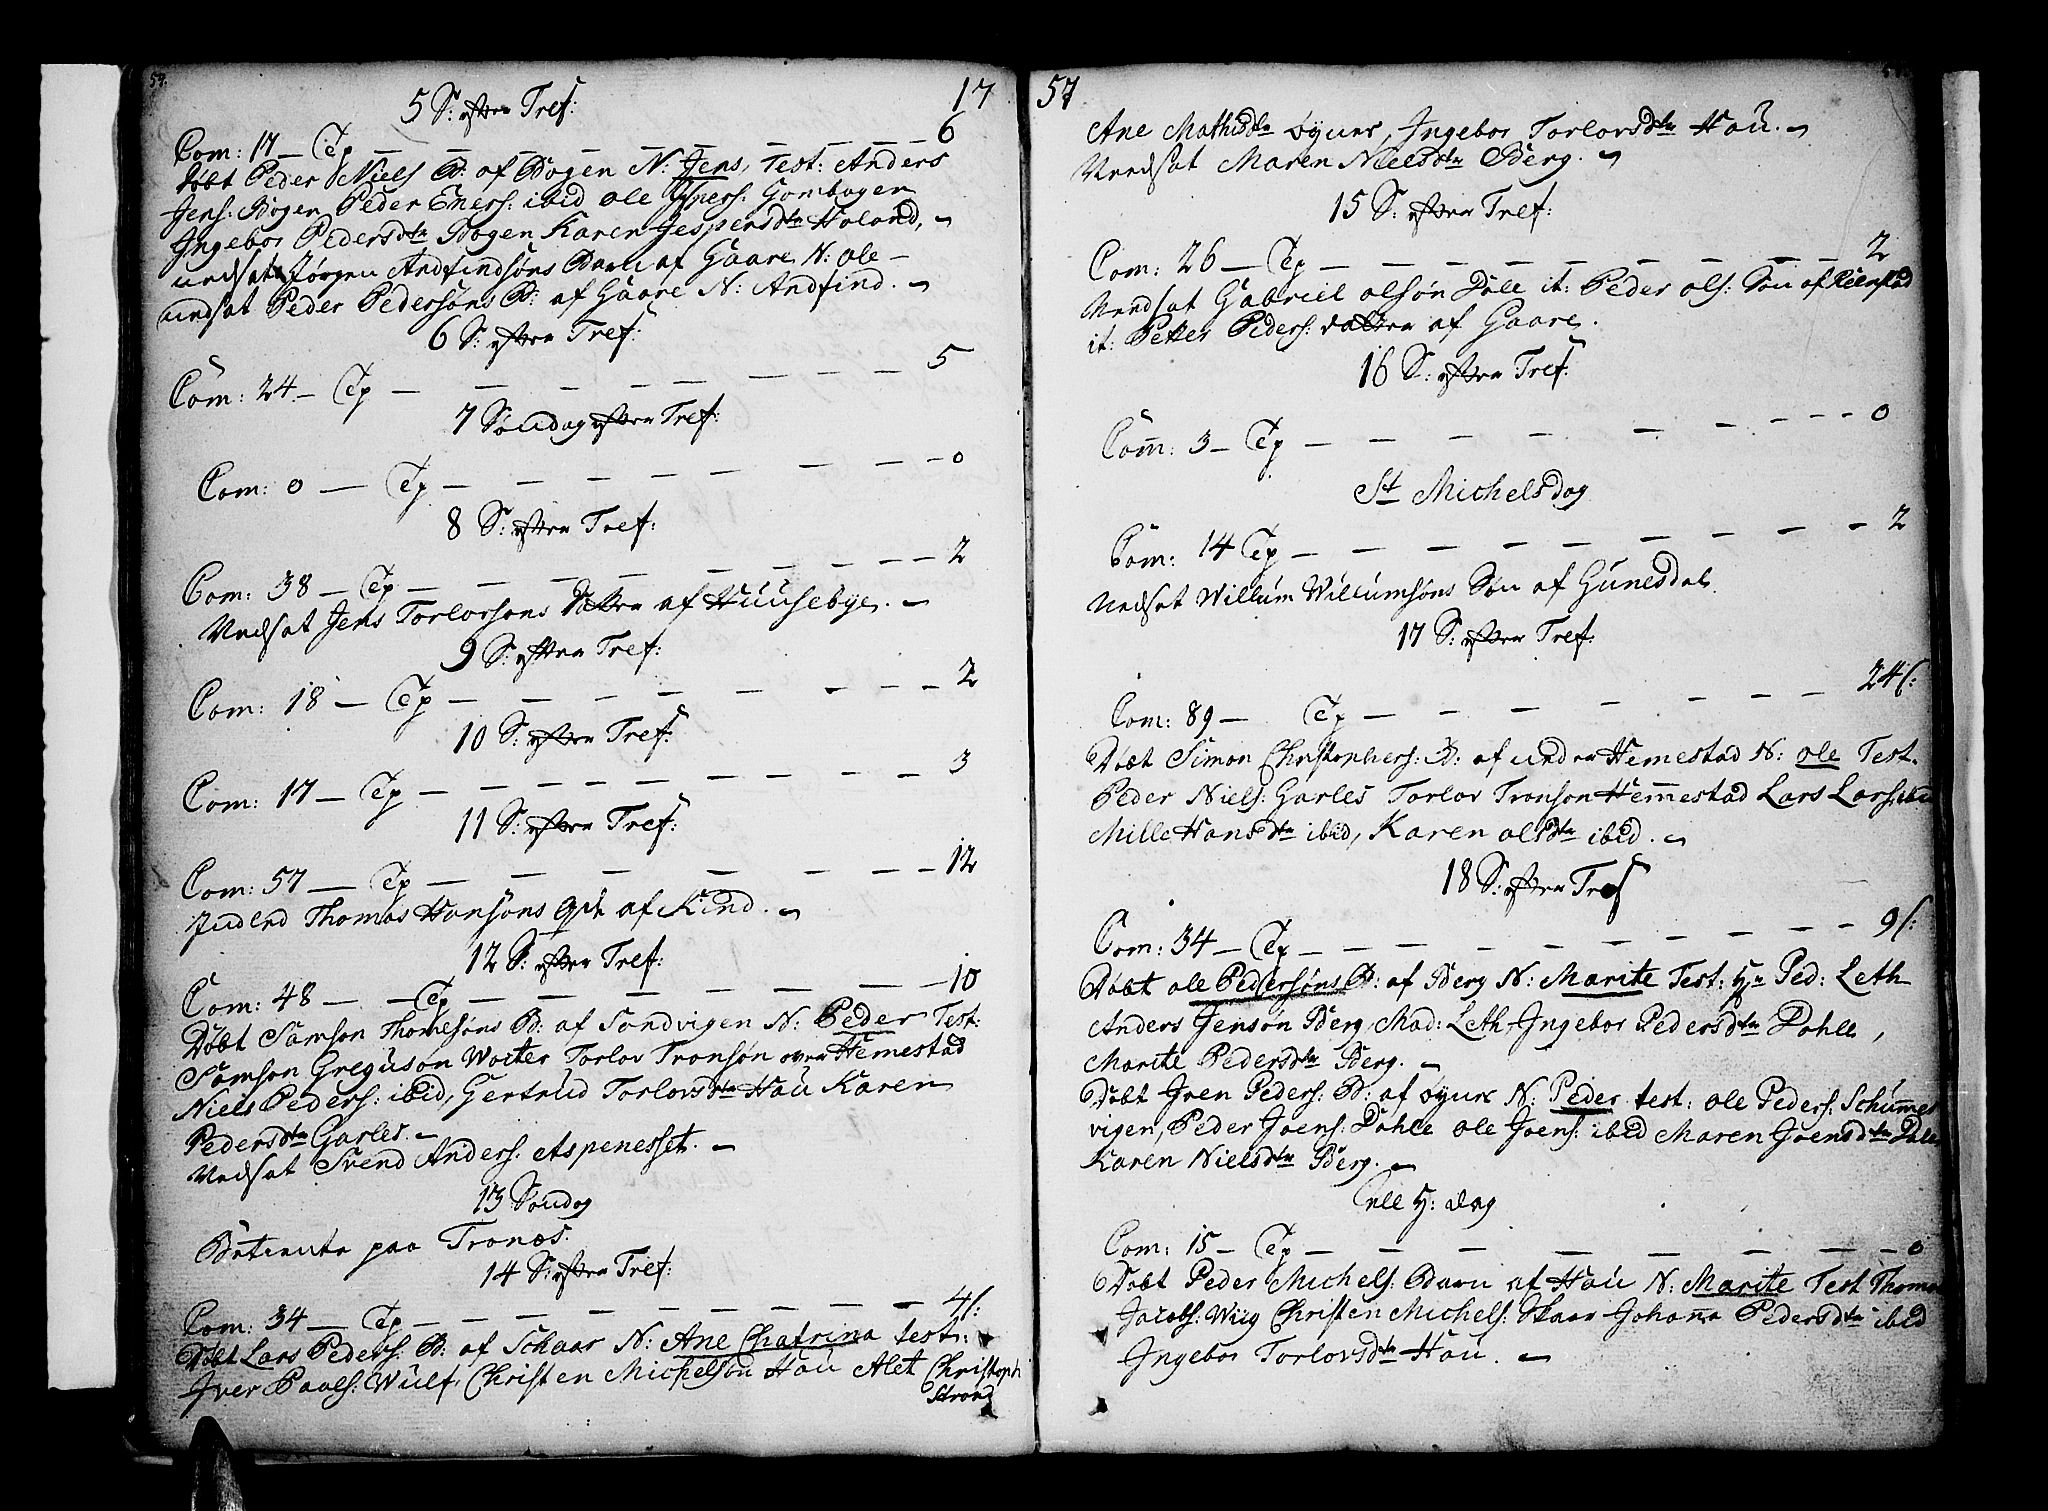 17
5 S: efter Tref:
Com: 17 — Tp — — — — — — — — 6
Døbt Peder Niels B: af Bogen N: Jens, Test: Anders
Jens: Bogen Peder Eners: ibid ole Gombogen
Ingebor Pedersdtr Bogen Karen Jespersdtr Holand, ~
Jørgen Andfindsøns Barn af Gaare N: ole ~
Peder Pedersøns B: af Gaare N: Andfind. ~
6 S: efter Tref:
Com: 24 — Tp — — — — — — — — 5
7 Søndag efter Tref:
Com: 0 — Tp — — — — — — — — 0
8 S: efter Tref:
Com: 38 — Tp — — — — — — — — 2
Vedsat Jens Torlorsons Datter af Huusebye. ~
9 S: efter Tref:
Com: 18 — Tp — — — — — — — — 2
10 S: efter Tref:
Com: 17 — Tp — — — — — — — — 3
11 S: efter Tref:
Com: 57 — Tp — — — — — — — — 12
Thomas Hansøns af Kind. ~
12 S: efter Tref:
Com: 48 — Tp — — — — — — — 10
Døbt Samson Thomesøns B: af Sandvigen N: Peder Test:
Samson Greguson Wolter Torlov Tronsøn over Hemestad
Niels Peders: ibid, Gertrud Torlovsdtr Hau Karen
Pedersdtr Garles. ~
Vedsat Svend Anders: etspenesset. ~
13 Søndag
Betiente paa Tronæs.
14 S: efter Tref:
Com: 34 — Tp — — — — — — — 4 s:
Døbt Lars Peders: B: af Schaar N: Ane Chatrina test:
Iver Povls: Wulf, Christen Michelson Hau Alet Christoph
Strand
57
Ane Mathisdtr øynes, Ingebor Torlovsdtr Hau. ~
Vendsat Maren Nielsdtr Berg. ~
15 S: efter Tref:
Com: 26 — Tp — — — — — — — — 2
Vendsat Gabriel olsøn Dale it: Peder ols: Søn af
it: Petter Peders: datter af Gaare.
16 S: efter Tref:
Com: 3 — Tp — — — — — — — — 0
St Michelsdag
Com: 14 Tp — — — — — — — — 2
Vedsat Willum Willumsøns Søn af Gunesdal.
17 S: efter Tref:
Com: 89 — Tp — — — — — — — 24 s:
Døbt Simon Christophers: B: af under Hemestad N: ole Test.
Peder Niels: Garles Torlov Tronson Hemestad Lars Lars: ibid
Mille Hansdtr ibid, Karen olsdtr ibid. ~
18 S: efter Tref
Com: 34 — Tp — — — — — — — 9 s:
Døbt ole Pedersøns B: af Berg N: Marite Test: Hr Ped: Leth
Anders Jensøn Berg, Mad: Leth Ingebor Pedersdtr Dahle,
Marite Pedersdtr Berg. ~
Døbt Joen Peders: B: af øynes N: Peder test: ole Peders: Schumes
vigen, Peder Joens: Dahle ole Joens: ibid Maren Joensdtr Dale
Karen Nielsdtr Berg. ~
H: dag
Com: 15 — Tp — — — — — — — 0
Døbt Peder Michels: Barn af Hau N: Marite Test Thomas
Jacobs: Wiig Christen Michels: Skaar Johanna Pedersdtr ibid
Ingebor Torlovsdtr Hau. ~